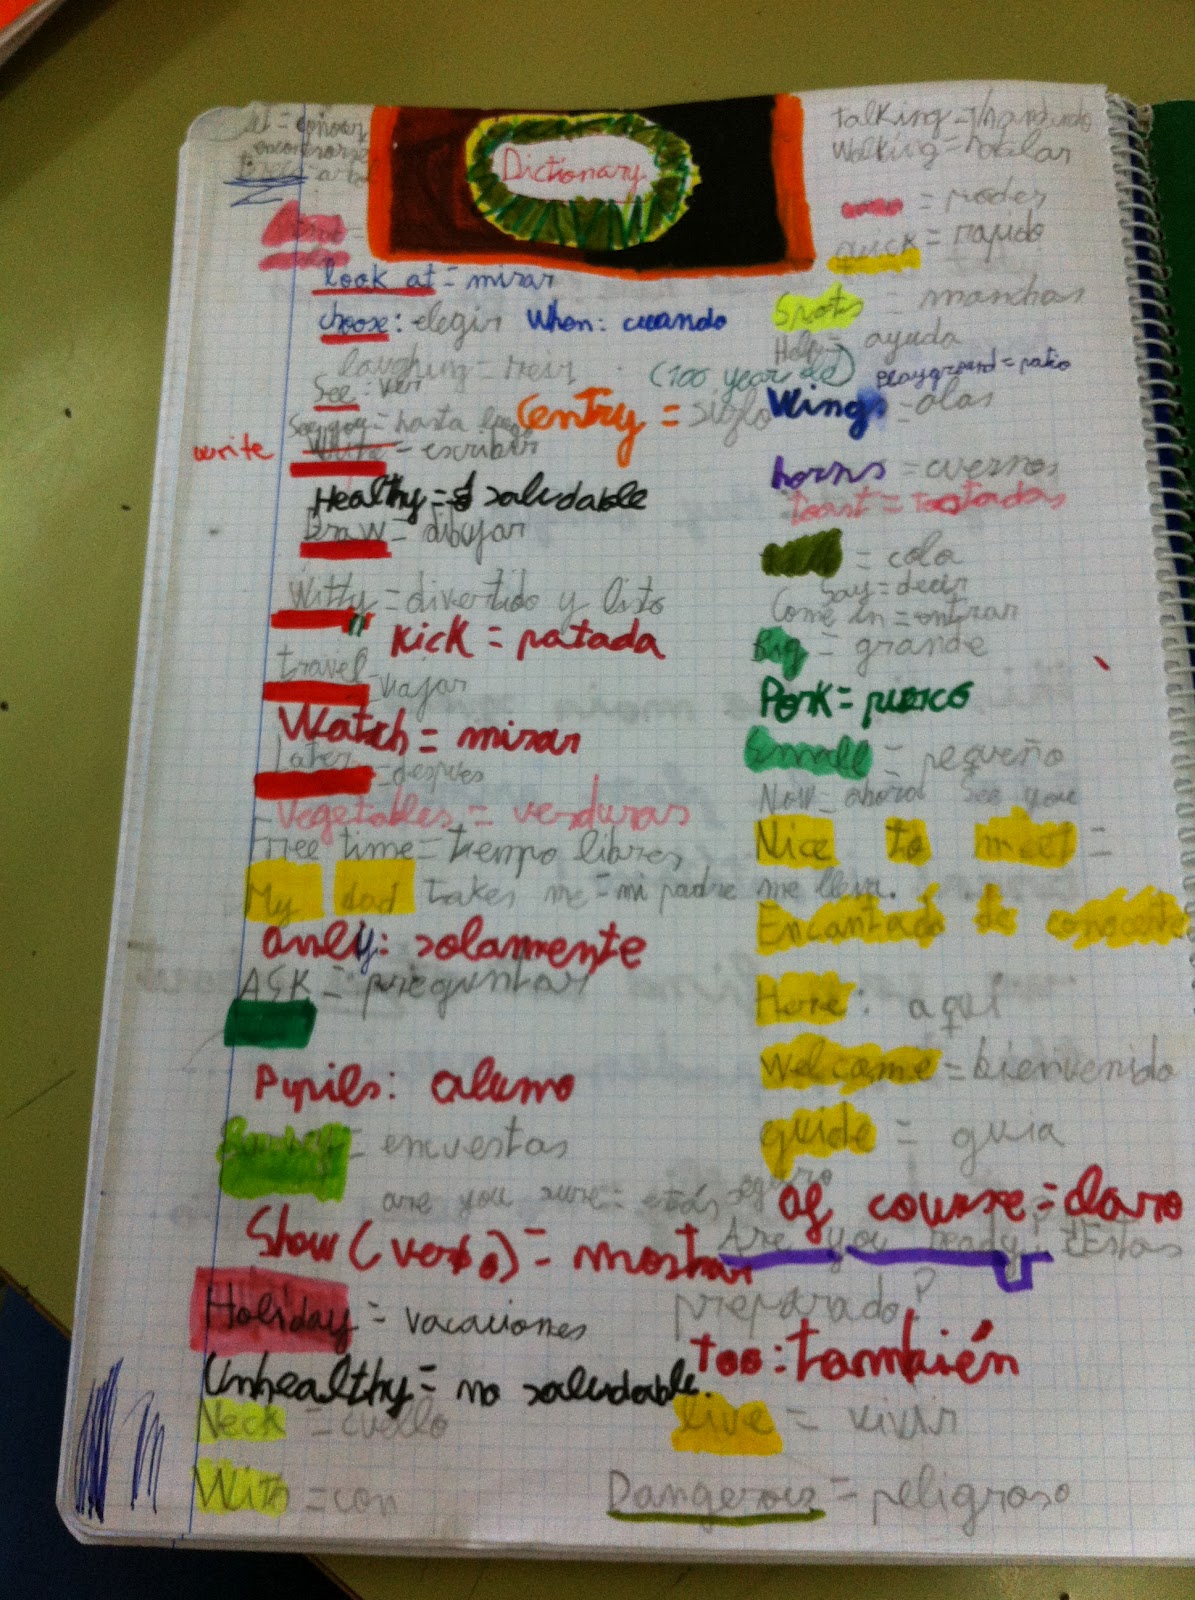 Dictionary
look at = mirar
choose: elegir When: cuando
laughing = reir (100 year old)
See: ver
Centry = siglo
See you = hasta
write write = escribir
Healthy = saludable
Draw = dibujar
Witty = divertido y listo
Kick = patada
travel = viajar
Watch = mirar
Later = despues
Vegetables = verduras
Free time = tiempo libres
My dad takes me = mi padre me lleva.
only: solamente
ASK = preguntar
Pupils: alumo
= encuestas
are you sure = estás seguro
Show (verbo) = mostrar
Holiday = vacaciones
Unhealthy = no saludable.
Neck = cuello
With = con
talking =
Walking = hablar
= poder
quick = rapido
Spots = manchas
Help = ayuda
playground = patio
Wings = alas
horns = cuernos
toast = tostadas
= cola
Say = decir
Come in = entrar
Big = grande
Pork = puerco
Small = pequeño
Now = ahora See you
Nice to meet =
Encantado de conocerte
Here: aquí
Welcome = bienvenido
guide = guia
of course = claro
Are you ready? ¿Estas
preparado?
too: también
live = vivir
Dangerous = peligroso